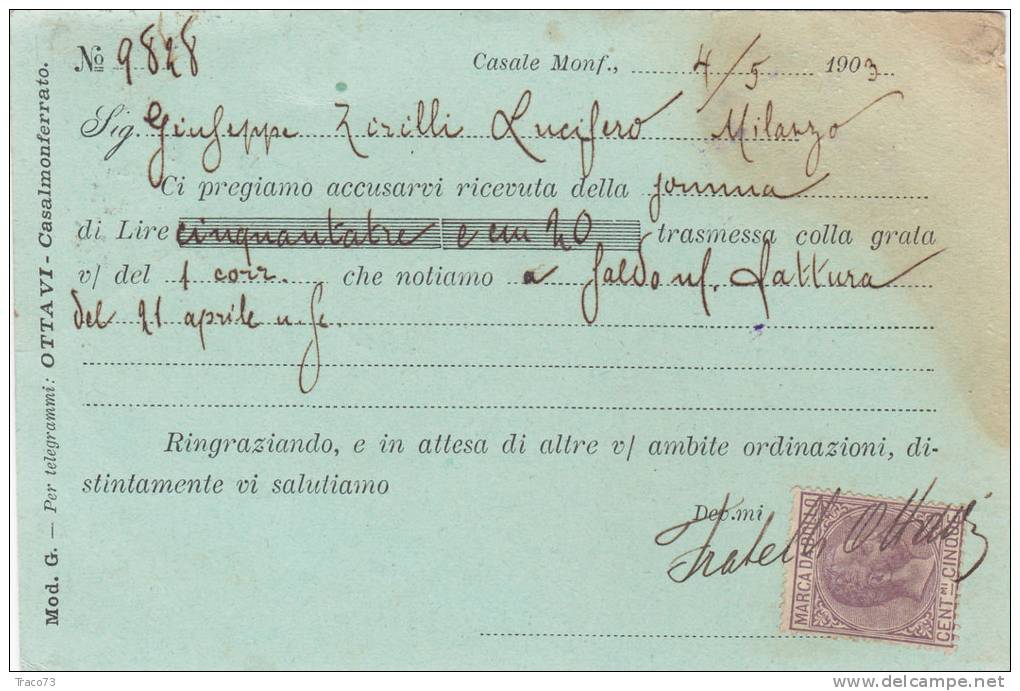 No 9828 Casale Monf., 4/5 1903
Sig. Giuseppe Zirilli Lucifero Milazzo
Ci pregiamo accusarvi ricevuta della somma
di Lire cinquantatre e cmi 20 trasmessa colla grata
v/ del 1 corr. che notiamo a saldo n/. fattura
del 21 aprile u. s.
Ringraziando, e in attesa di altre v/ ambite ordinazioni, di-
stintamente vi salutiamo
Dev.mi
Fratelli Ottavi
MARCA DA BOLLO
CENT.MI CINQUE
Mod. G. — Per telegrammi: OTTAVI - Casalmonferrato.
Traco73
delcampe.net